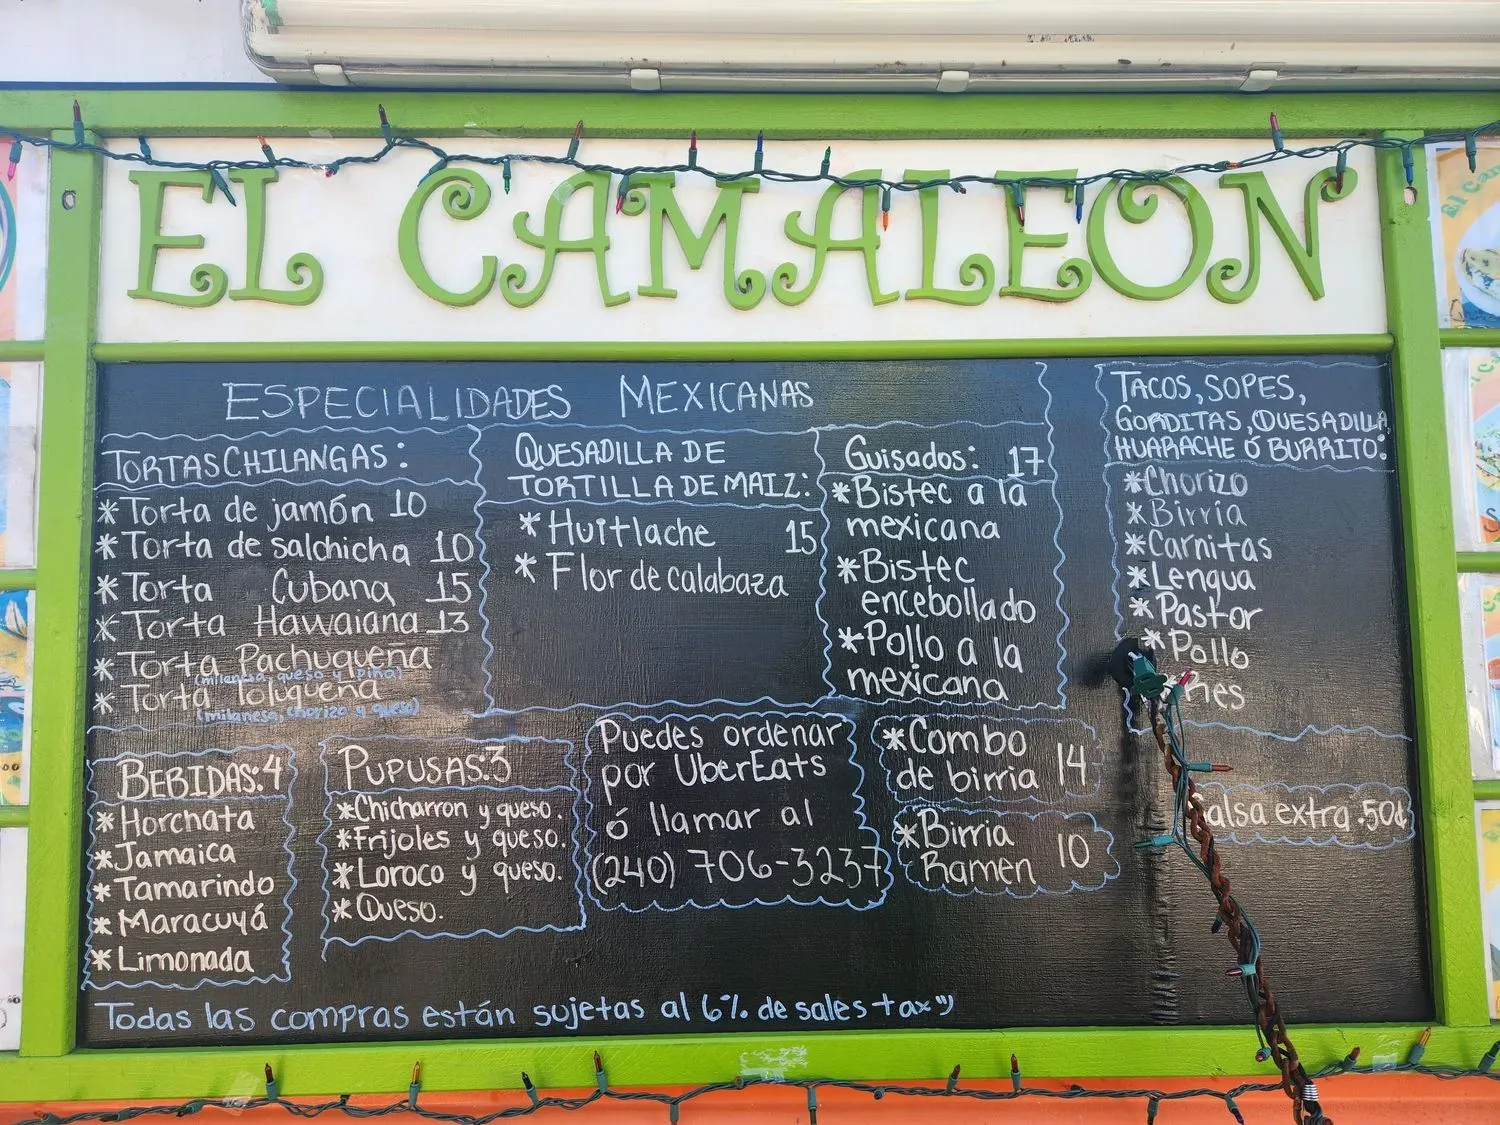 EL CAMALEON
ESPECIALIDADES MEXICANAS
TORTAS CHILANGAS:
*Torta de jamón 10
*Torta de salchicha 10
*Torta Cubana 15
*Torta Hawaiana 13
*Torta Pachuqueña
(milanesa, queso y piña)
*Torta Toluqueña
(milanesa, chorizo y queso)
QUESADILLA DE
TORTILLA DE MAIZ:
*Huitlache 15
*Flor de calabaza
Guisados: 17
*Bistec a la
mexicana
*Bistec
encebollado
*Pollo a la
mexicana
TACOS, SOPES,
GORDITAS, QUESADILLA,
HUARACHE Ó BURRITO:
*Chorizo
*Birria
*Carnitas
*Lengua
*Pastor
*Pollo
*Res
BEBIDAS: 4
*Horchata
*Jamaica
*Tamarindo
*Maracuyá
*Limonada
PUPUSAS: 3
*Chicharron y queso.
*Frijoles y queso.
*Loroco y queso.
*Queso.
Puedes ordenar
por UberEats
ó llamar al
(240) 706-3237
*Combo
de birria 14
*Birria
Ramen 10
Salsa extra .50¢
Todas las compras están sujetas al 6% de sales tax")